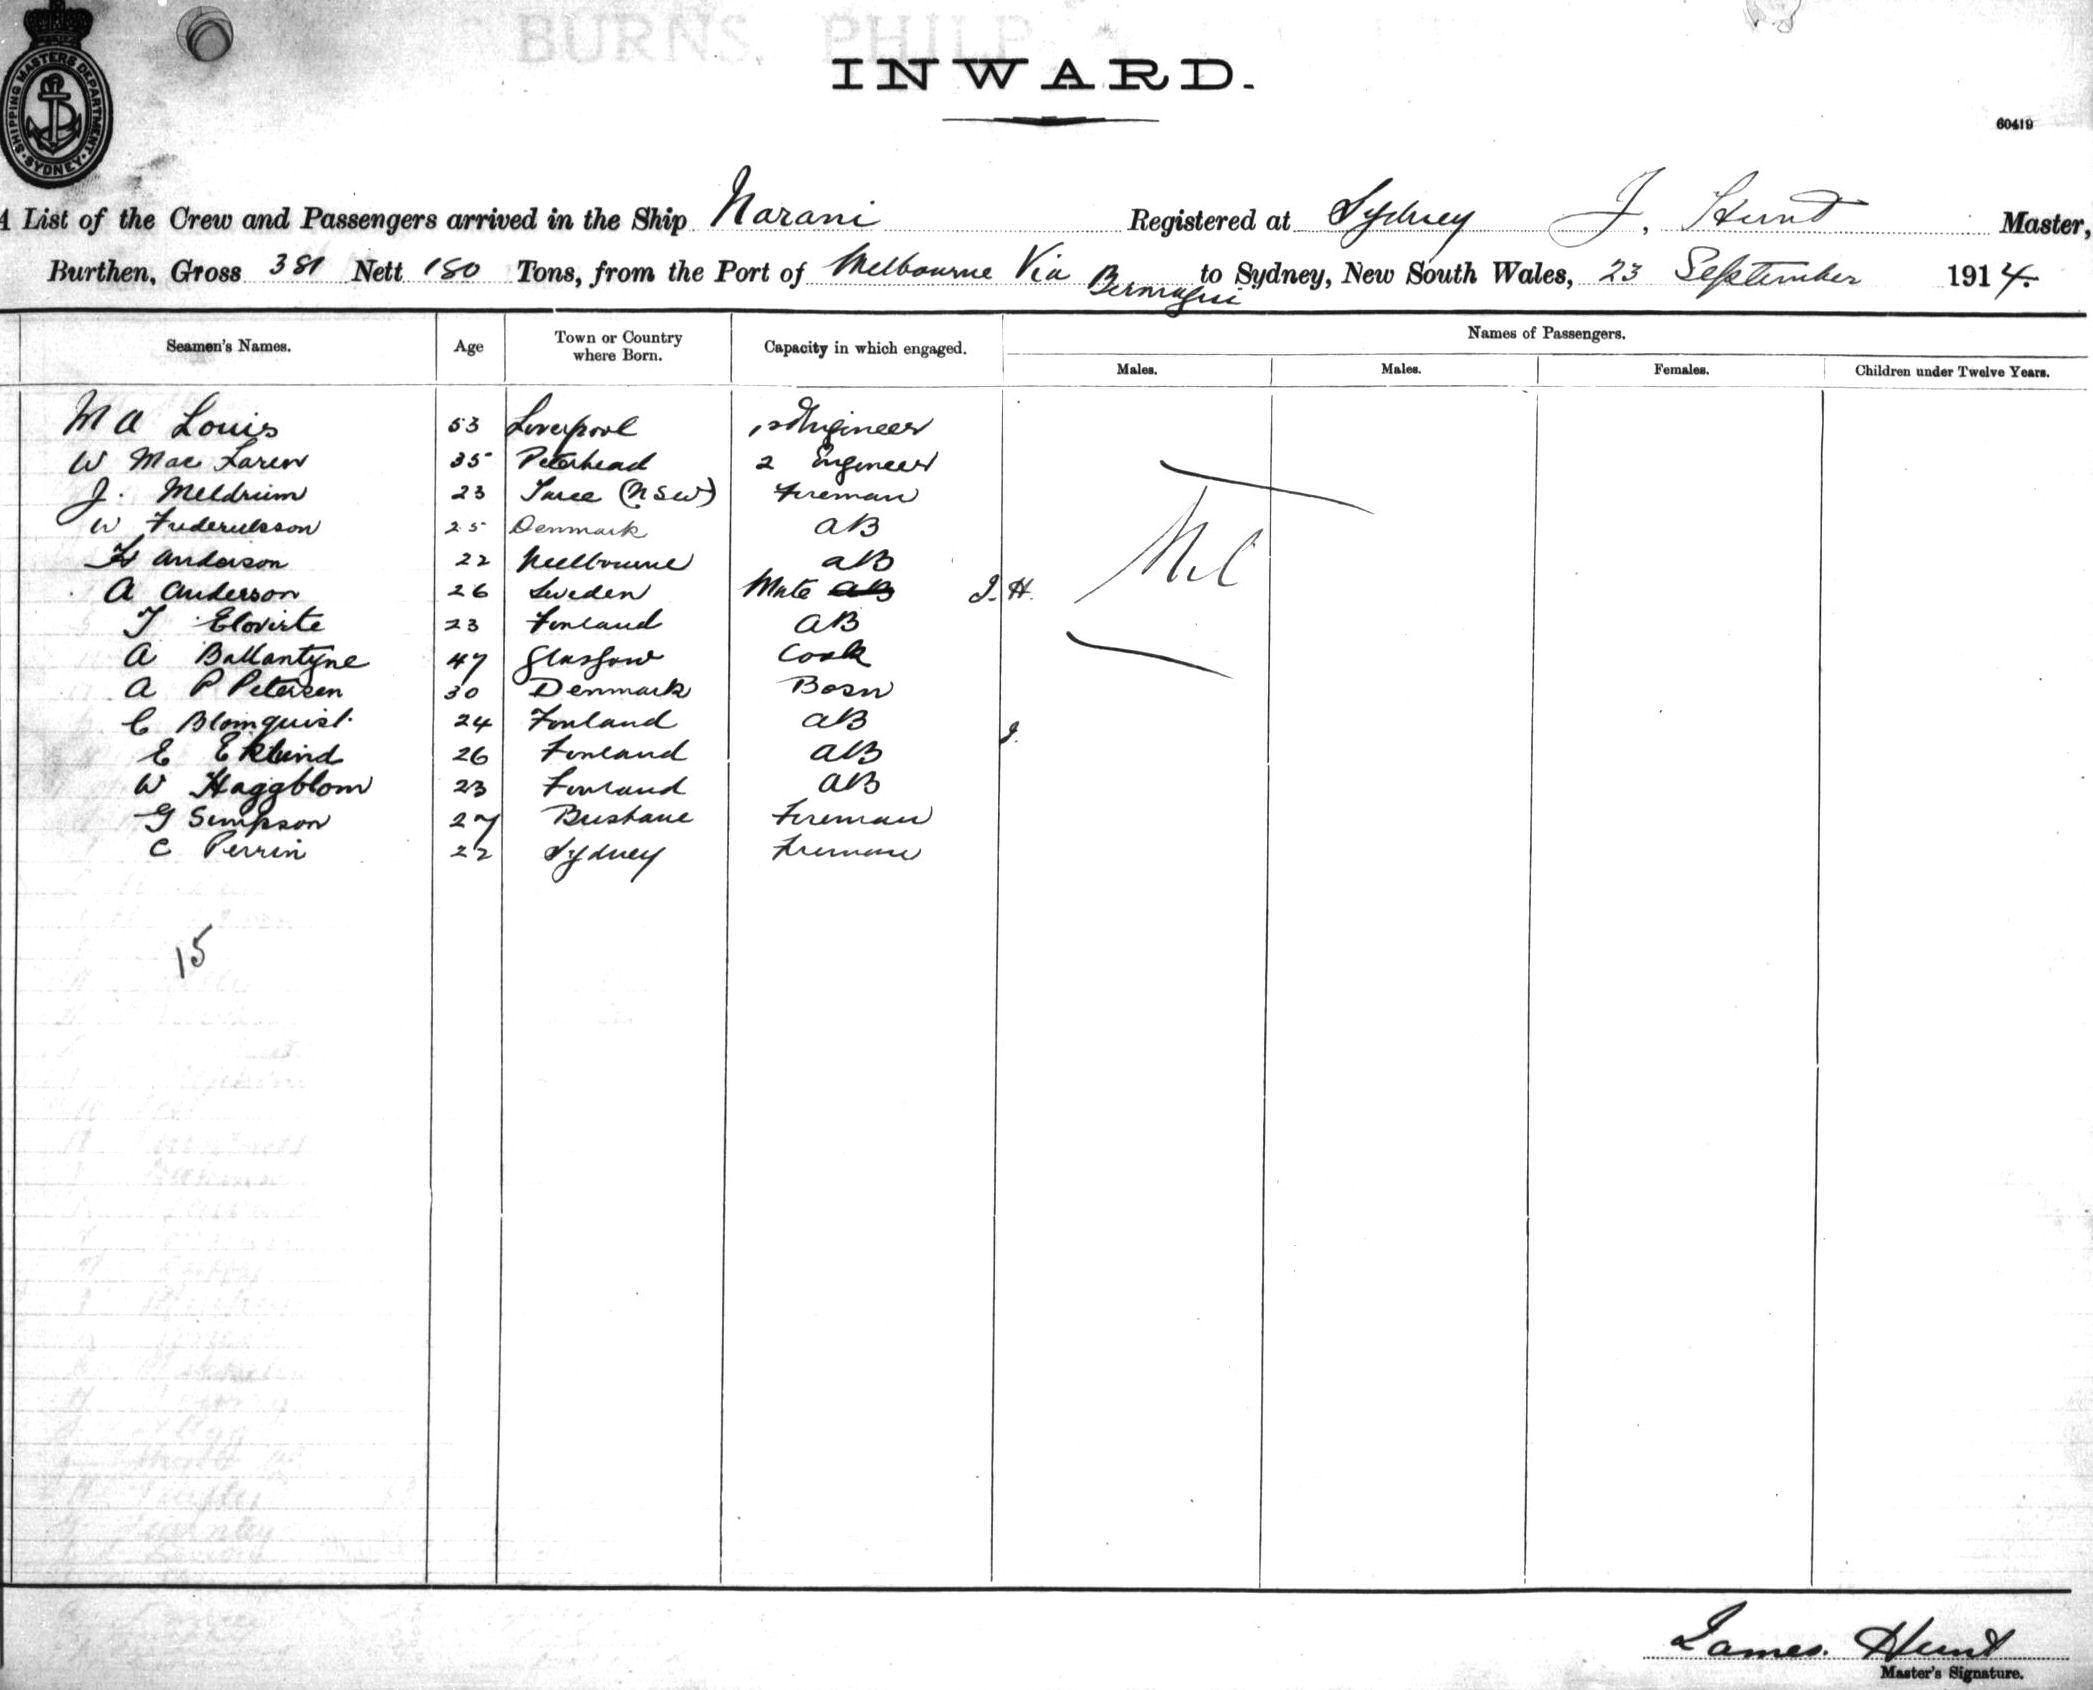 BURNS, PHILP
INWARD.
60419
SHIPPING MASTERS DEPARTMENT
SYDNEY
A List of the Crew and Passengers arrived in the Ship Narani Registered at Sydney J. Hunt Master,
Burthen, Gross 381 Nett 180 Tons, from the Port of Melbourne Via Bermagui to Sydney, New South Wales, 23 September 1914.
Seamen's Names. Age Town or Country where Born. Capacity in which engaged. Names of Passengers.
Males. Males. Females. Children under Twelve Years.
M A Louis 53 Liverpool 1st Engineer
W Mac Laren 35 Peterhead 2 Engineer
J. Meldrum 23 Taree (NSW) Fireman
W Frederiksson 25 Denmark AB
Anderson 22 Melbourne AB
A Anderson 26 Sweden Mate AB J. H.
Nil
T Elovirte 23 Finland AB
A Ballantyne 47 Glasgow Cook
A P Petersen 30 Denmark Bosn
C Blomquist. 24 Finland AB
E Eklund 26 Finland AB
W Haggblom 23 Finland AB
G Simpson 27 Brisbane Fireman
C Perrin 22 Sydney Fireman
15
James. Hunt
Master's Signature.